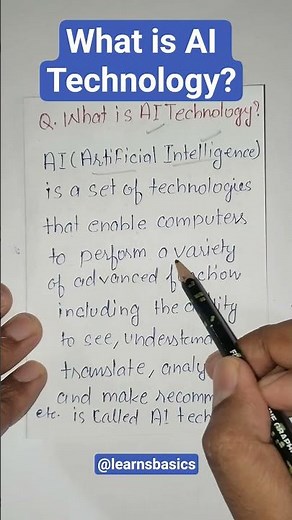 What is AI
Technology?
Q. What is AI Technology?
AI (Artificial Intelligence)
is a set of technologies
that enable computers
to perform a variety
of advanced
including the
to see,
translate,
and make
etc. is called AI
@learnsbasics